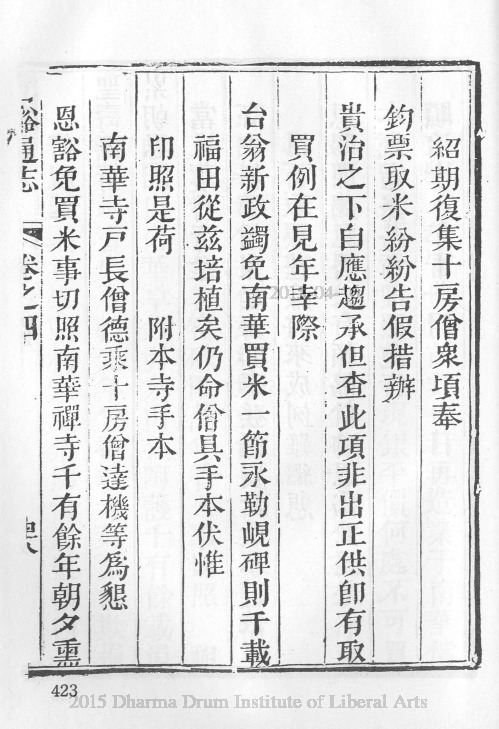 紹期復集十房僧衆頃奉
鈞票取米紛紛告假措辦
貴治之下自應趨承但查此項非出正供卽有取
買例在見年幸際
台翁新政蠲免南華買米一節永勒峴碑則千載
福田從兹培植矣仍命僧具手本伏惟
印照是荷　附本寺手本
南華寺戸長僧德乘十房僧達機等爲懇
恩豁免買米事切照南華禪寺千有餘年朝夕熏
谿通志　卷之四
423
2015 Dharma Drum Institute of Liberal Arts